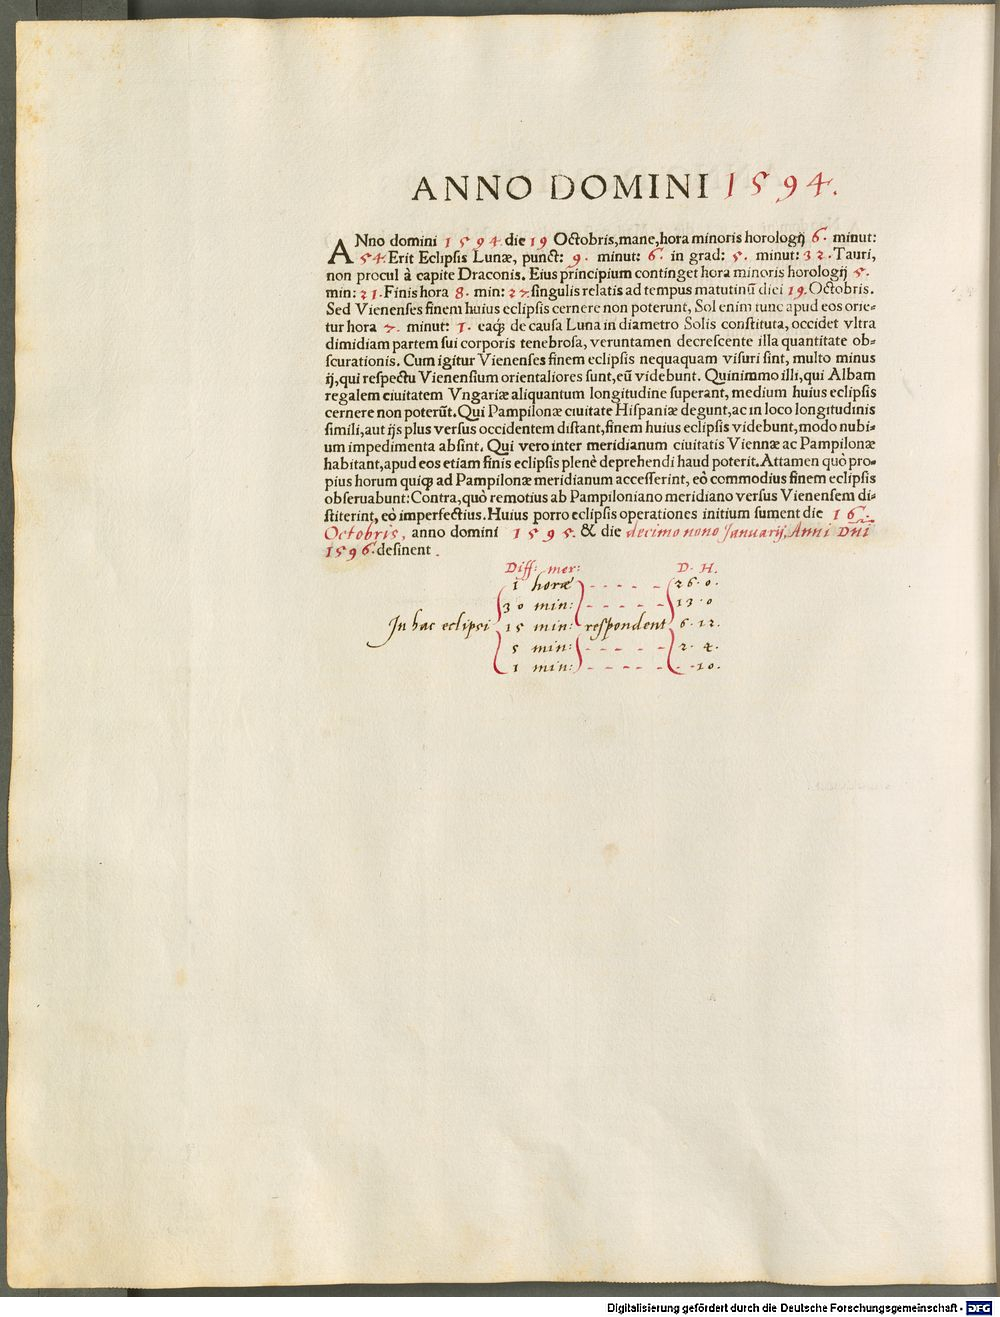 ANNO DOMINI 1594.
ANno domini 1594. die 19 Octobris, mane, hora minoris horologij 6. minut:
54. Erit Eclipsis Lunæ, punct: 9. minut: 6. in grad: 5. minut: 32. Tauri,
non procul à capite Draconis. Eius principium continget hora minoris horologij 5.
min: 21. Finis hora 8. min: 27. singulis relatis ad tempus matutinū diei 19. Octobris.
Sed Vienenses finem huius eclipsis cernere non poterunt, Sol enim tunc apud eos orie=
tur hora 7. minut: 1. eaq́; de causa Luna in diametro Solis constituta, occidet vltra
dimidiam partem sui corporis tenebrosa, veruntamen decrescente illa quantitate ob=
scurationis. Cum igitur Vienenses finem eclipsis nequaquam visuri sint, multo minus
ij, qui respectu Vienensium orientaliores sunt, eū videbunt. Quinimmo illi, qui Albam
regalem ciuitatem Vngariæ aliquantum longitudine superant, medium huius eclipsis
cernere non poterūt. Qui Pampilonæ ciuitate Hispaniæ degunt, ac in loco longitudinis
simili, aut ijs plus versus occidentem distant, finem huius eclipsis videbunt, modo nubi=
um impedimenta absint. Qui vero inter meridianum ciuitatis Viennæ ac Pampilonæ
habitant, apud eos etiam finis eclipsis plenè deprehendi haud poterit. Attamen quò pro=
pius horum quiq; ad Pampilonæ meridianum accesserint, eò commodius finem eclipsis
obseruabunt: Contra, quò remotius ab Pampiloniano meridiano versus Vienensem di=
stiterint, eò imperfectius. Huius porro eclipsis operationes initium sument die 16.
Octobris, anno domini 1595. & die decimo nono Januarij, Anni Dñi
1596. desinent.
Diff: mer: D. H.
1 horæ - - - - - 26. 0.
30 min: - - - - - 13. 0
In hac eclipsi 15 min: respondent 6. 12.
5 min: - - - - - 2. 4.
1 min: - - - - - - - 10.
Digitalisierung gefördert durch die Deutsche Forschungsgemeinschaft - DFG